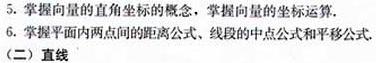 5. 掌握向量的直角坐标的概念，掌握向量的坐标运算.
6. 掌握平面内两点间的距离公式、线段的中点公式和平移公式.
（二）直线